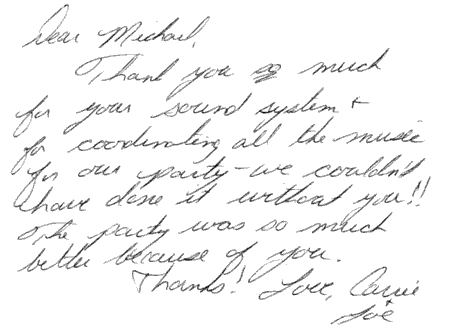 Dear Michael,
Thank you so much
for your sound system +
for coordinating all the music
for our party - we couldn't
have done it without you!!
The party was so much
better because of you.
Thanks! Love, Carrie
+
Joe